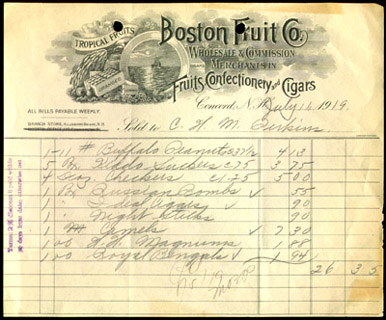 TROPICAL FRUITS
Boston Fruit Co.
WHOLESALE & COMMISSION
MERCHANTS IN
Fruits, Confectionery and Cigars
ALL BILLS PAYABLE WEEKLY.
Concord, N.H. July 12 1919.
Sold to C. H. M. Perkins
1-11 # Buffalo Peanut 4 13
5 Bx Suckers c75 3 75
4 Doz. Checkers c1.25 5 00
1 Bx Russian Bombs ✓ 55
1 " Ideal Aggies ✓ 90
1 " Night Sticks 90
1 M Camels ✓ 7 30
1 00 Magnums 1 88
1 00 Royal Bengals ✓ 1 94
26 35